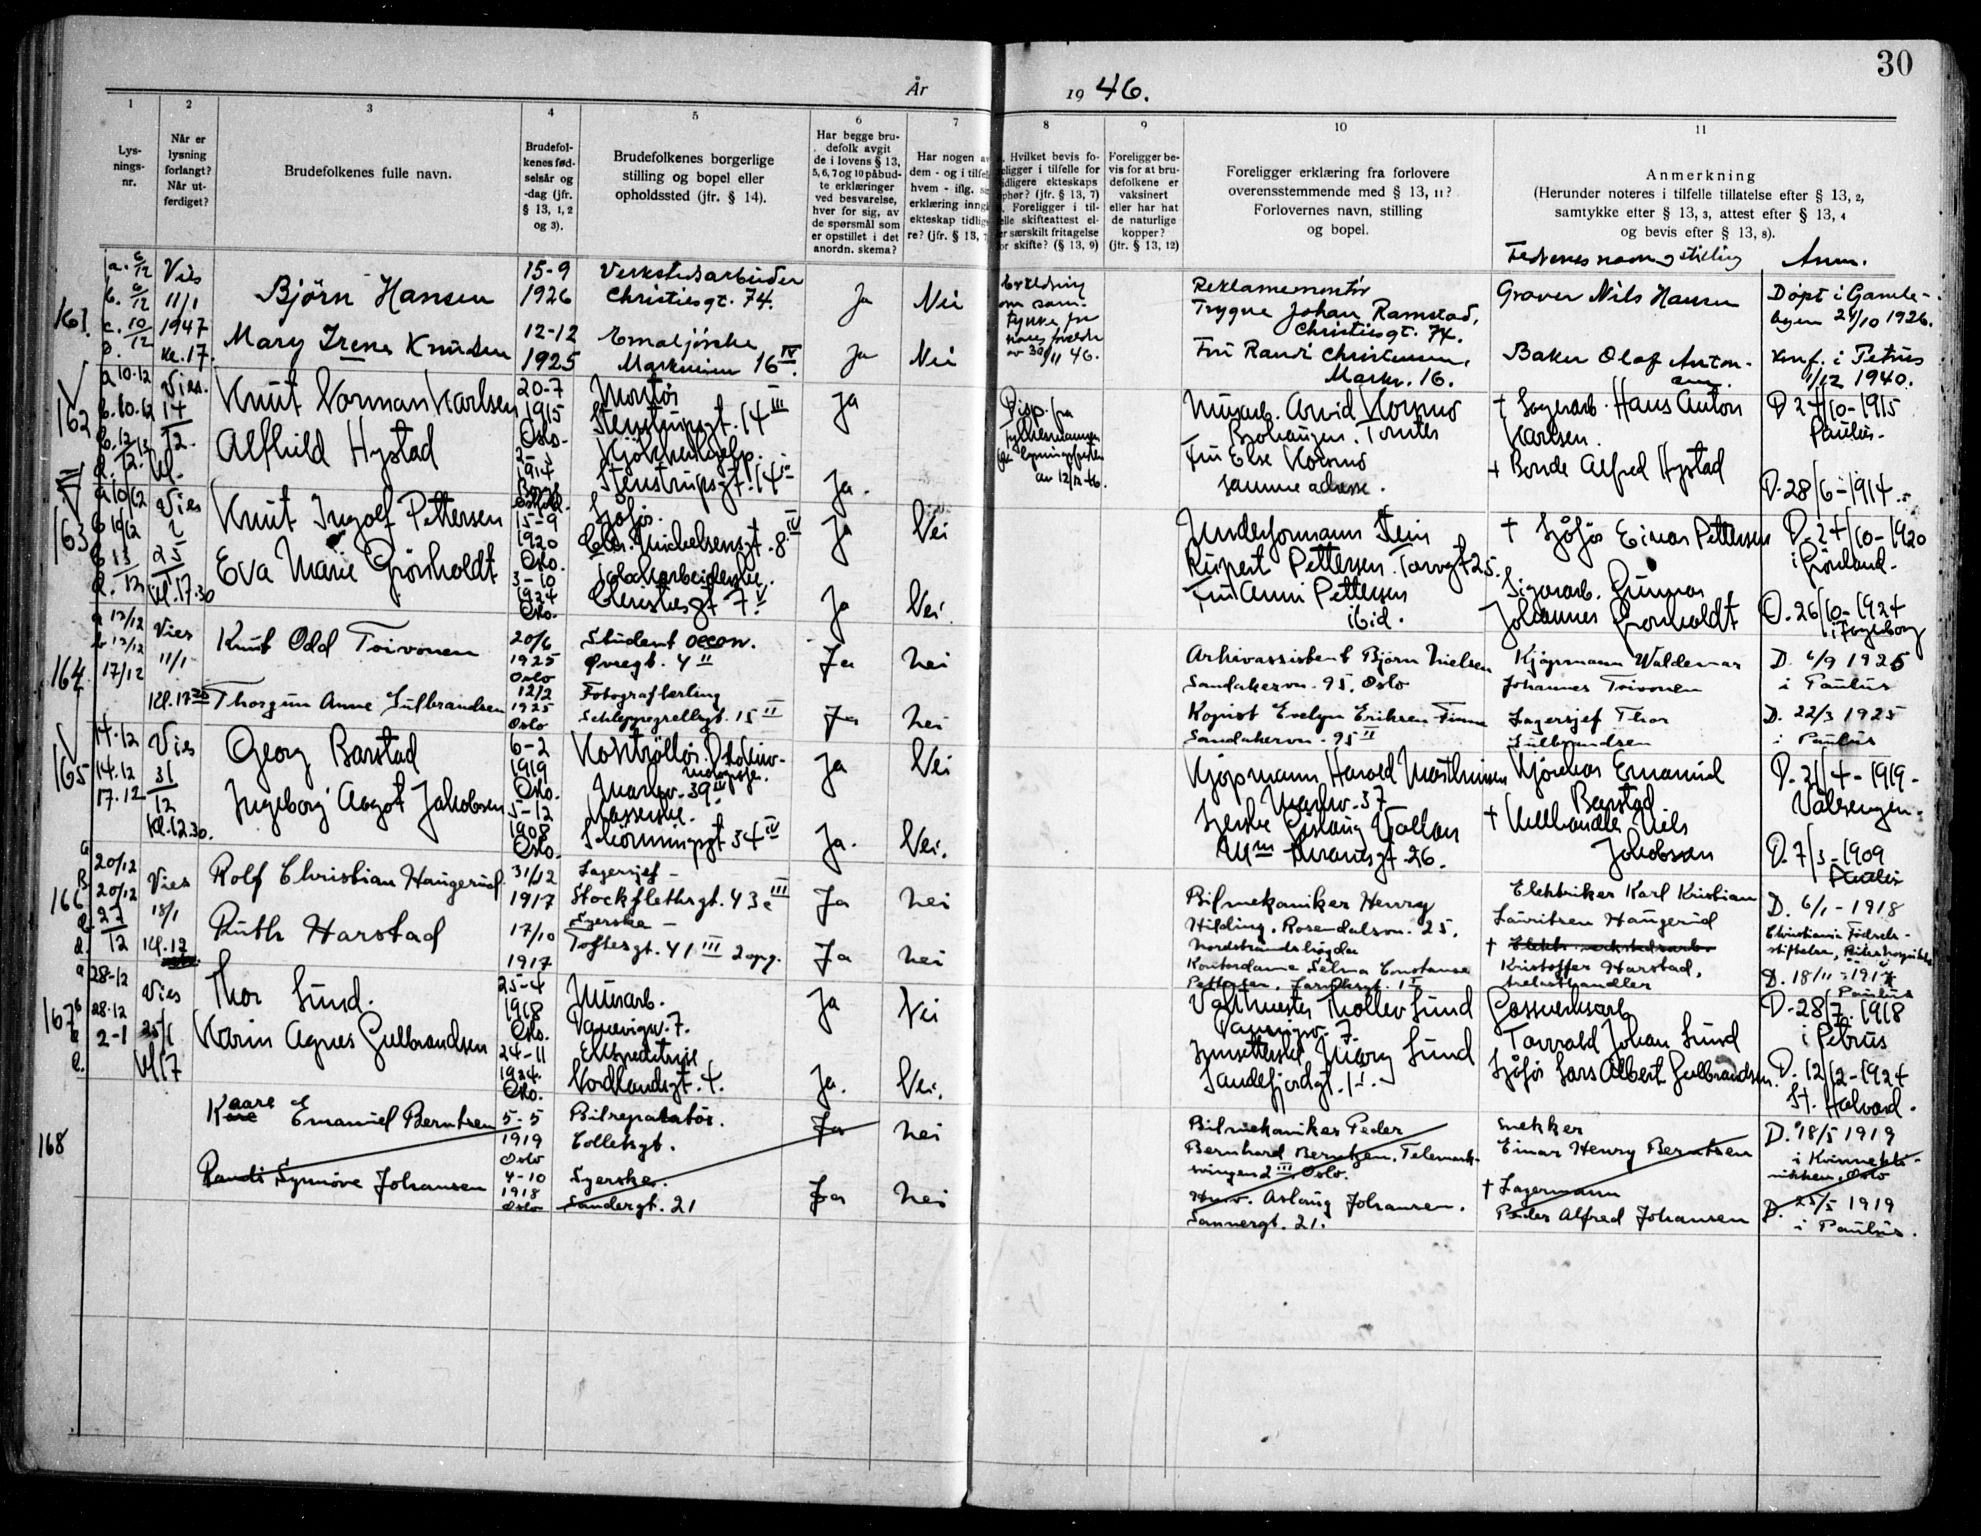 30
År
19 46.
1
2
3
4
5
6
7
8
9
10
11
Lys-
nings-
nr.
Når er
lysning
forlangt?
Når ut-
ferdiget?
Brudefolkenes fulle navn.
Brudefol-
kenes fød-
selsår og
-dag (jfr.
§ 13, 1, 2
og 3).
Brudefolkenes borgerlige
stilling og bopel eller
opholdssted (jfr. § 14).
Har begge bru-
defolk avgit
de i lovens § 13,
5, 6, 7 og 10 påbud-
te erklæringer
ved besvarelse,
hver for sig, av
de spørsmål som
er opstillet i det
anordn. skema?
Har nogen av
dem - og i tilfel
hvem - iflg. s
erklæring inng
ekteskap tidlig
re? (jfr. § 13, 7
Hvilket bevis fo-
eligger i tilfelle for
idligere ekteskaps
ophør? (jfr. § 13, 7)
Foreligger i til-
elle skifteattest el-
er særskilt fritagelse
or skifte? (§ 13, 9)
Foreligger be-
vis for at bru-
defolkene er
vaksinert
eller har hat
de naturlige
kopper?
(jfr. § 13, 12)
Foreligger erklæring fra forlovere
overensstemmende med § 13, 11?
Forlovernes navn, stilling
og bopel.
Anmerkning
(Herunder noteres i tilfelle tillatelse efter § 13, 2,
samtykke efter § 13, 3, attest efter § 13, 4
og bevis efter § 13, 8).
Fedrenes navn og stilling
Anm.
161.
a. 6/12
b. 6/12
c. 10/12
D.
Vies
11/1
1947
kl. 17.
Bjørn Hansen
15-9
1926
Verkstedsarbeider
Christiesgt. 74.
Ja
Nei
av 30/11 46.
Reklamemontør
Trygve Johan Ramstad,
Christiesgt. 74.
Graver Nils Hansen
Døpt i Gamle-
byen 24/10 1926.
Mary Irene Knudsen
12-12
1925
Markveien 16 IV.
Ja
Nei
Fru Randi Christensen,
Markv. 16.
Baker Olaf Anton-
Konf. i Petrus
1/12 1940.
162
a 10.12
b. 10.12
Vies.
14
12.
kl.
Knut Norman Karlsen
20-7
1915
Oslo.
Montør
Stenstrupsgt. 14 III
Ja
Disp. fra
fylkesmannen
av 12/12 46.
Murarb. Arvid Kornmo
Fru Else Kornmo
samme adresse.
† Lagerarb. Hans Anton
Karlsen.
D 24/10-1915
Paulus.
Alfhild Hystad
1914
Kjökkenhjelp.
Stenstrupsgt. 14
Ja.
† Bonde Alfred Hystad
D. 28/6-1914.
163
a 10/12
b 10/12
d.
Vies
25
kl. 17.30
Knut Ingolf Pettersen
15-9
1920
Oslo.
Sjåfør.
Chr. Michelsensgt. 8 IV
Ja
Nei
Underformann Stein
Rupert Pettersen. Torvgt 25.
† Sjåfør Einar Pettersen
D. 24/10-1920
i Grönland.
Eva Marie Grönholdt
3-10
1924
Oslo.
Christiesgt 7 V
Ja
Nei.
Fru Anni Pettersen
ibid.
Sigararb. Gunnar
Johannes Grönholdt
D. 26/10-1924
164
a 13/12
b 13/12
17/12
Vies
11/1
Kl. 17 30
Knut Odd Toivonen
20/6
1925
Oslo
Student oecon.
Øvregt. 4 II
Ja
nei
Arkivassistent Björn Nielsen
Sandakervn. 95, Oslo
Kjøpmann Waldemar
Johannes Toivonen
D. 6/9 1925
i Paulus
Thorgun Anne Gulbrandsen
12/2
1925
Oslo
Fotograflærling
Schleppegrellsgt. 15 II
Ja
nei
Kopist Evelyn Eriksen Finne
Sandakervn. 95 II
Lagersjef Thor
Gulbrandsen
D. 22/3 1925
i Paulus
165
14.12
14.12
17.12
Vies
31
12
Kl. 12.30.
Georg Barstad
6-2
1919
Oslo.
Markv. 39 III
Ja
Nei
Kjøpmann Harald Mathiesen
Markv. 37
Kjörekar Emanuel
Barstad
D. 21/4-1919-
Vålerengen.
Ingeborg Aagot Jakobsen
5-12
1908
Oslo.
Kasserske.
Schönningsgt 34 IV
Ja.
Nei.
† Vedhandler Niels
Jakobsen
D. 7/3-1909
Paulus
166
a
20/12
B
20/12
c 27
d. 12
Vies
18/1
Kl. 17
Rolf Christian Haugerud
31/12
1917
Lagersjef -
Stockflethsgt. 43 c III
Ja
nei
Bilmekaniker Henry
Hilding, Rosendalsvn. 25,
Nordstrandshögda
Elektriker Karl Kristian
Lauritsen Haugerud
D. 6/1-1918
Christiania Fødsels-
stiftelse, Rikshospitalet
Ruth Harstad
17/10
1917
Syerske -
Toftesgt. 41 III 2 opg.
Ja
nei
Kontordame Selma Constanse
†
Kristoffer Harstad,
D. 18/11 1917
Paulus
167
a 28-12
b 28-12
c 2-1
d.
Vies
25/1
kl 17
Thor Lund.
25-4
1918
Oslo.
Murarb.
Vanevigsv. 7.
Ja
Nei
Vaktmester Thollev Lund
Vaneviksv. 7.
Gassverksarb
Torvald Johan Lund
D-28/7. 1918
i Petrus
Karin Agnes Gulbrandsen
24-11
1924.
Oslo.
Ekspeditrise
Nordlandsgt. 4.
Ja.
Nei.
Mary Lund
Sandefjordgt. 1 I.
Sjåfør Lars Albert Gulbrandsen.
D. 12/12-1924
St. Halvard.
168
Kaare Emanuel Berntsen
5-5
1919
Oslo
Bilreparatør.
Colletsgt.
Ja
nei
Bilmekaniker Peder
Bernhard Berntzen, Telemark-
svingen 2 III. Oslo.
snekker
Einar Henry Berntsen
D. 18/5 1919
i Kvinnekli-
nikken, Oslo
Randi Synnöve Johansen
4-10
1918
Oslo
Syerske.
Sandergt. 21
Ja
nei
Aslaug Johansen.
Sannergt. 21.
† Lagermann
Peder Alfred Johansen
D. 25/5 1919
i Paulus.